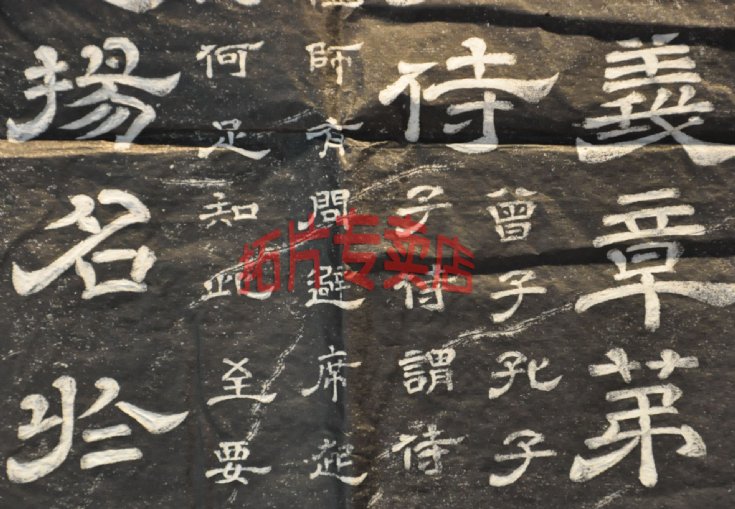 義章苐
侍
曾子孔子
子侍謂侍
師有問避席起
何足知此至要
揚名於
拓片专卖店